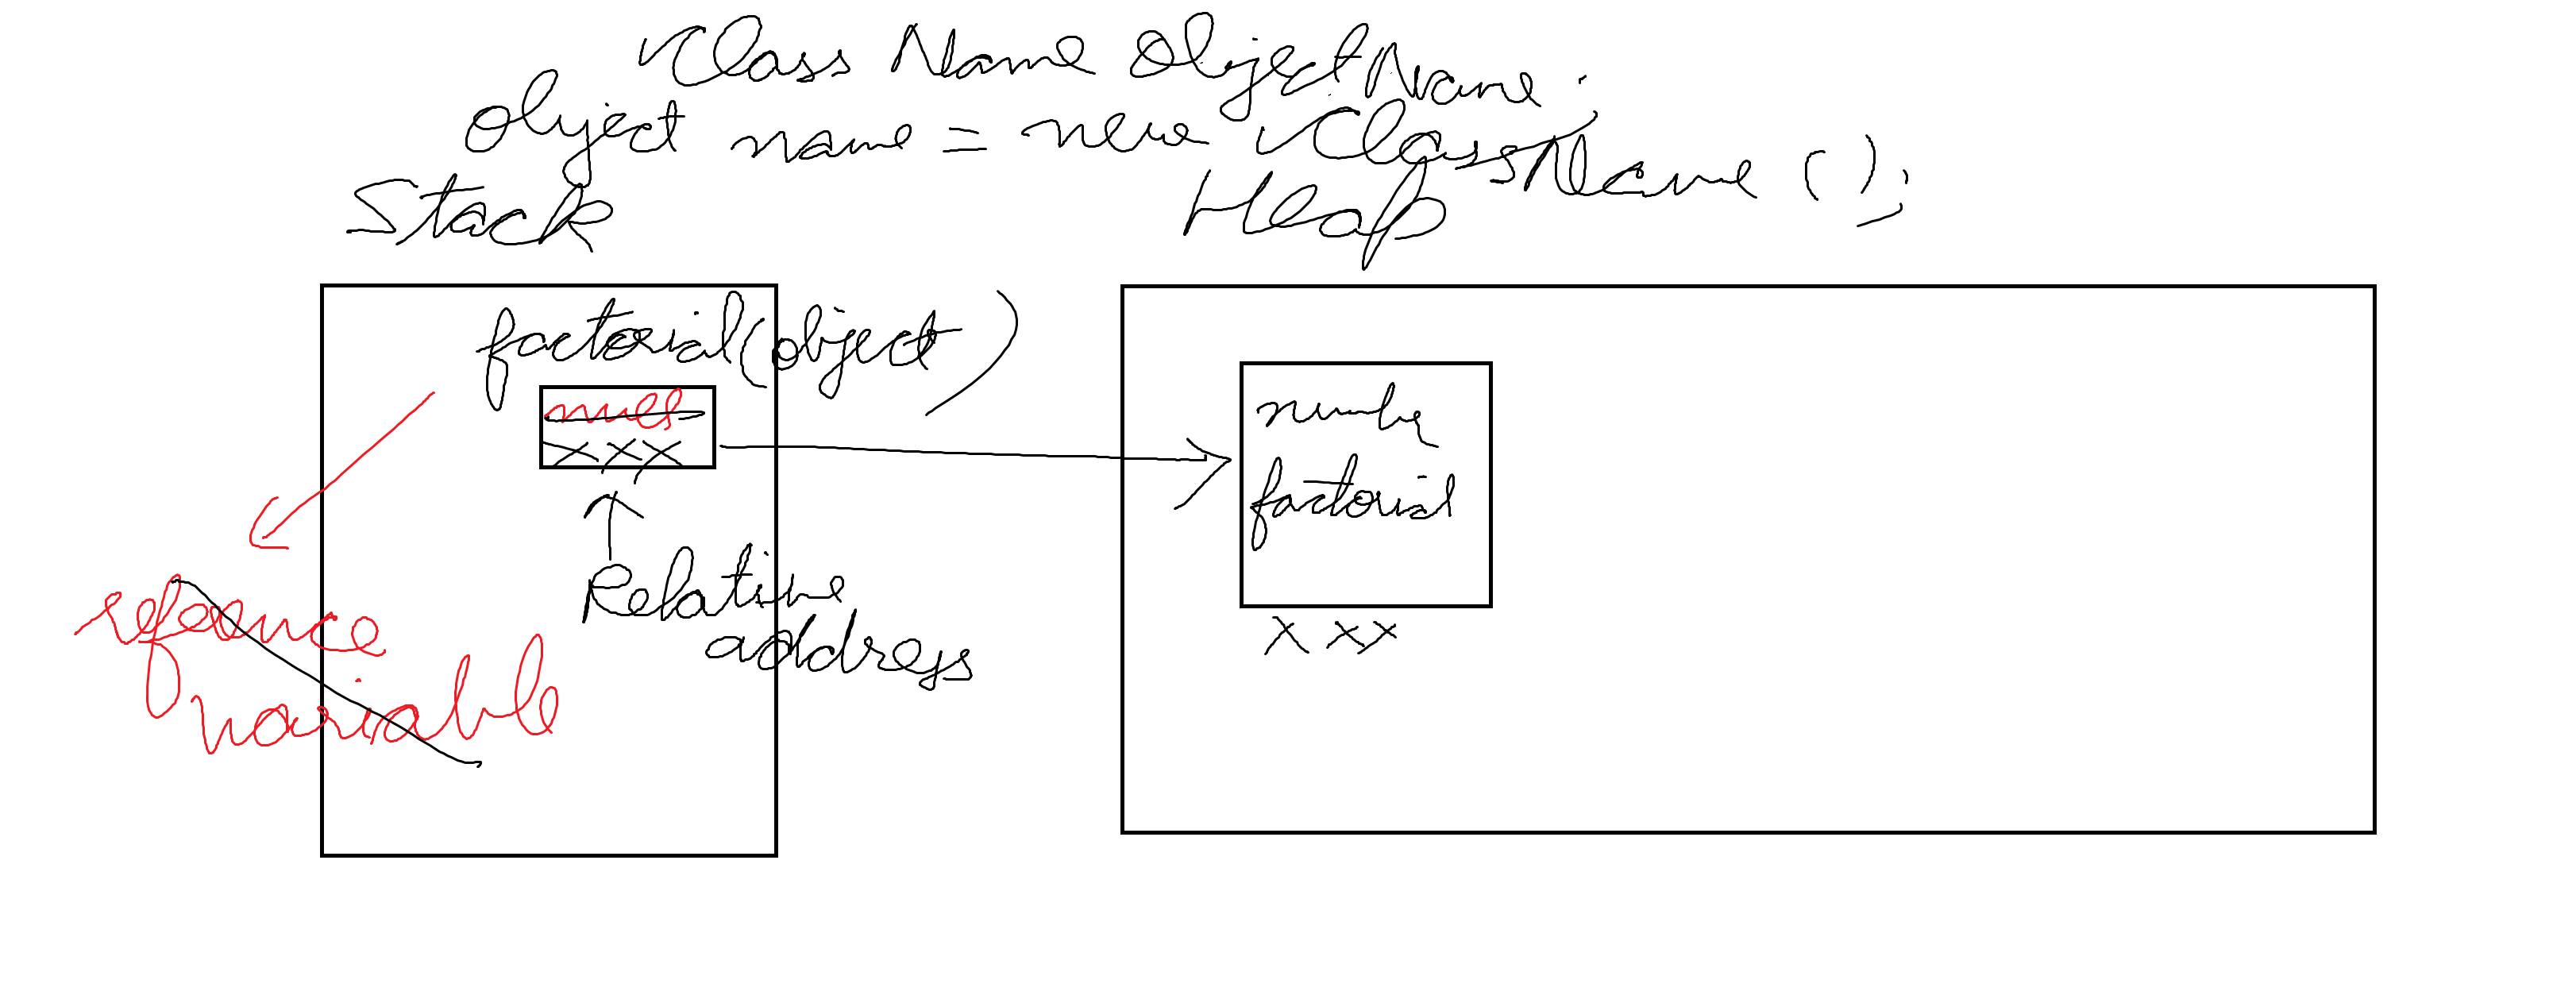 Class Name ObjectName;
Object name = new ClassName();
Stack
Heap
factorial(object)
null
xxx
Relative
address
reference
variable
number
factorial
xxx